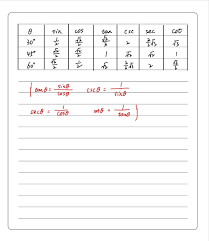 θ sin cos tan csc sec cot
30° 1/2 √3/2 √3/3 2 2/3√3 √3
45° √2/2 √2/2 1 √2 √2 1
60° √3/2 1/2 √3 2/3√3 2 √3/3
( tanθ = sinθ/cosθ cscθ = 1/sinθ
secθ = 1/cosθ cotθ = 1/tanθ )